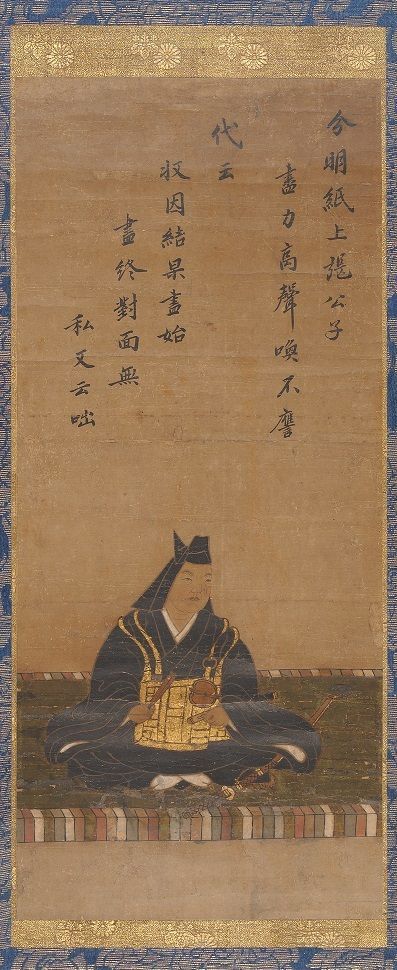 分明紙上張公子
盡力高聲喚不譍
代云
収因結果盡始
盡終對面無
私又云咄